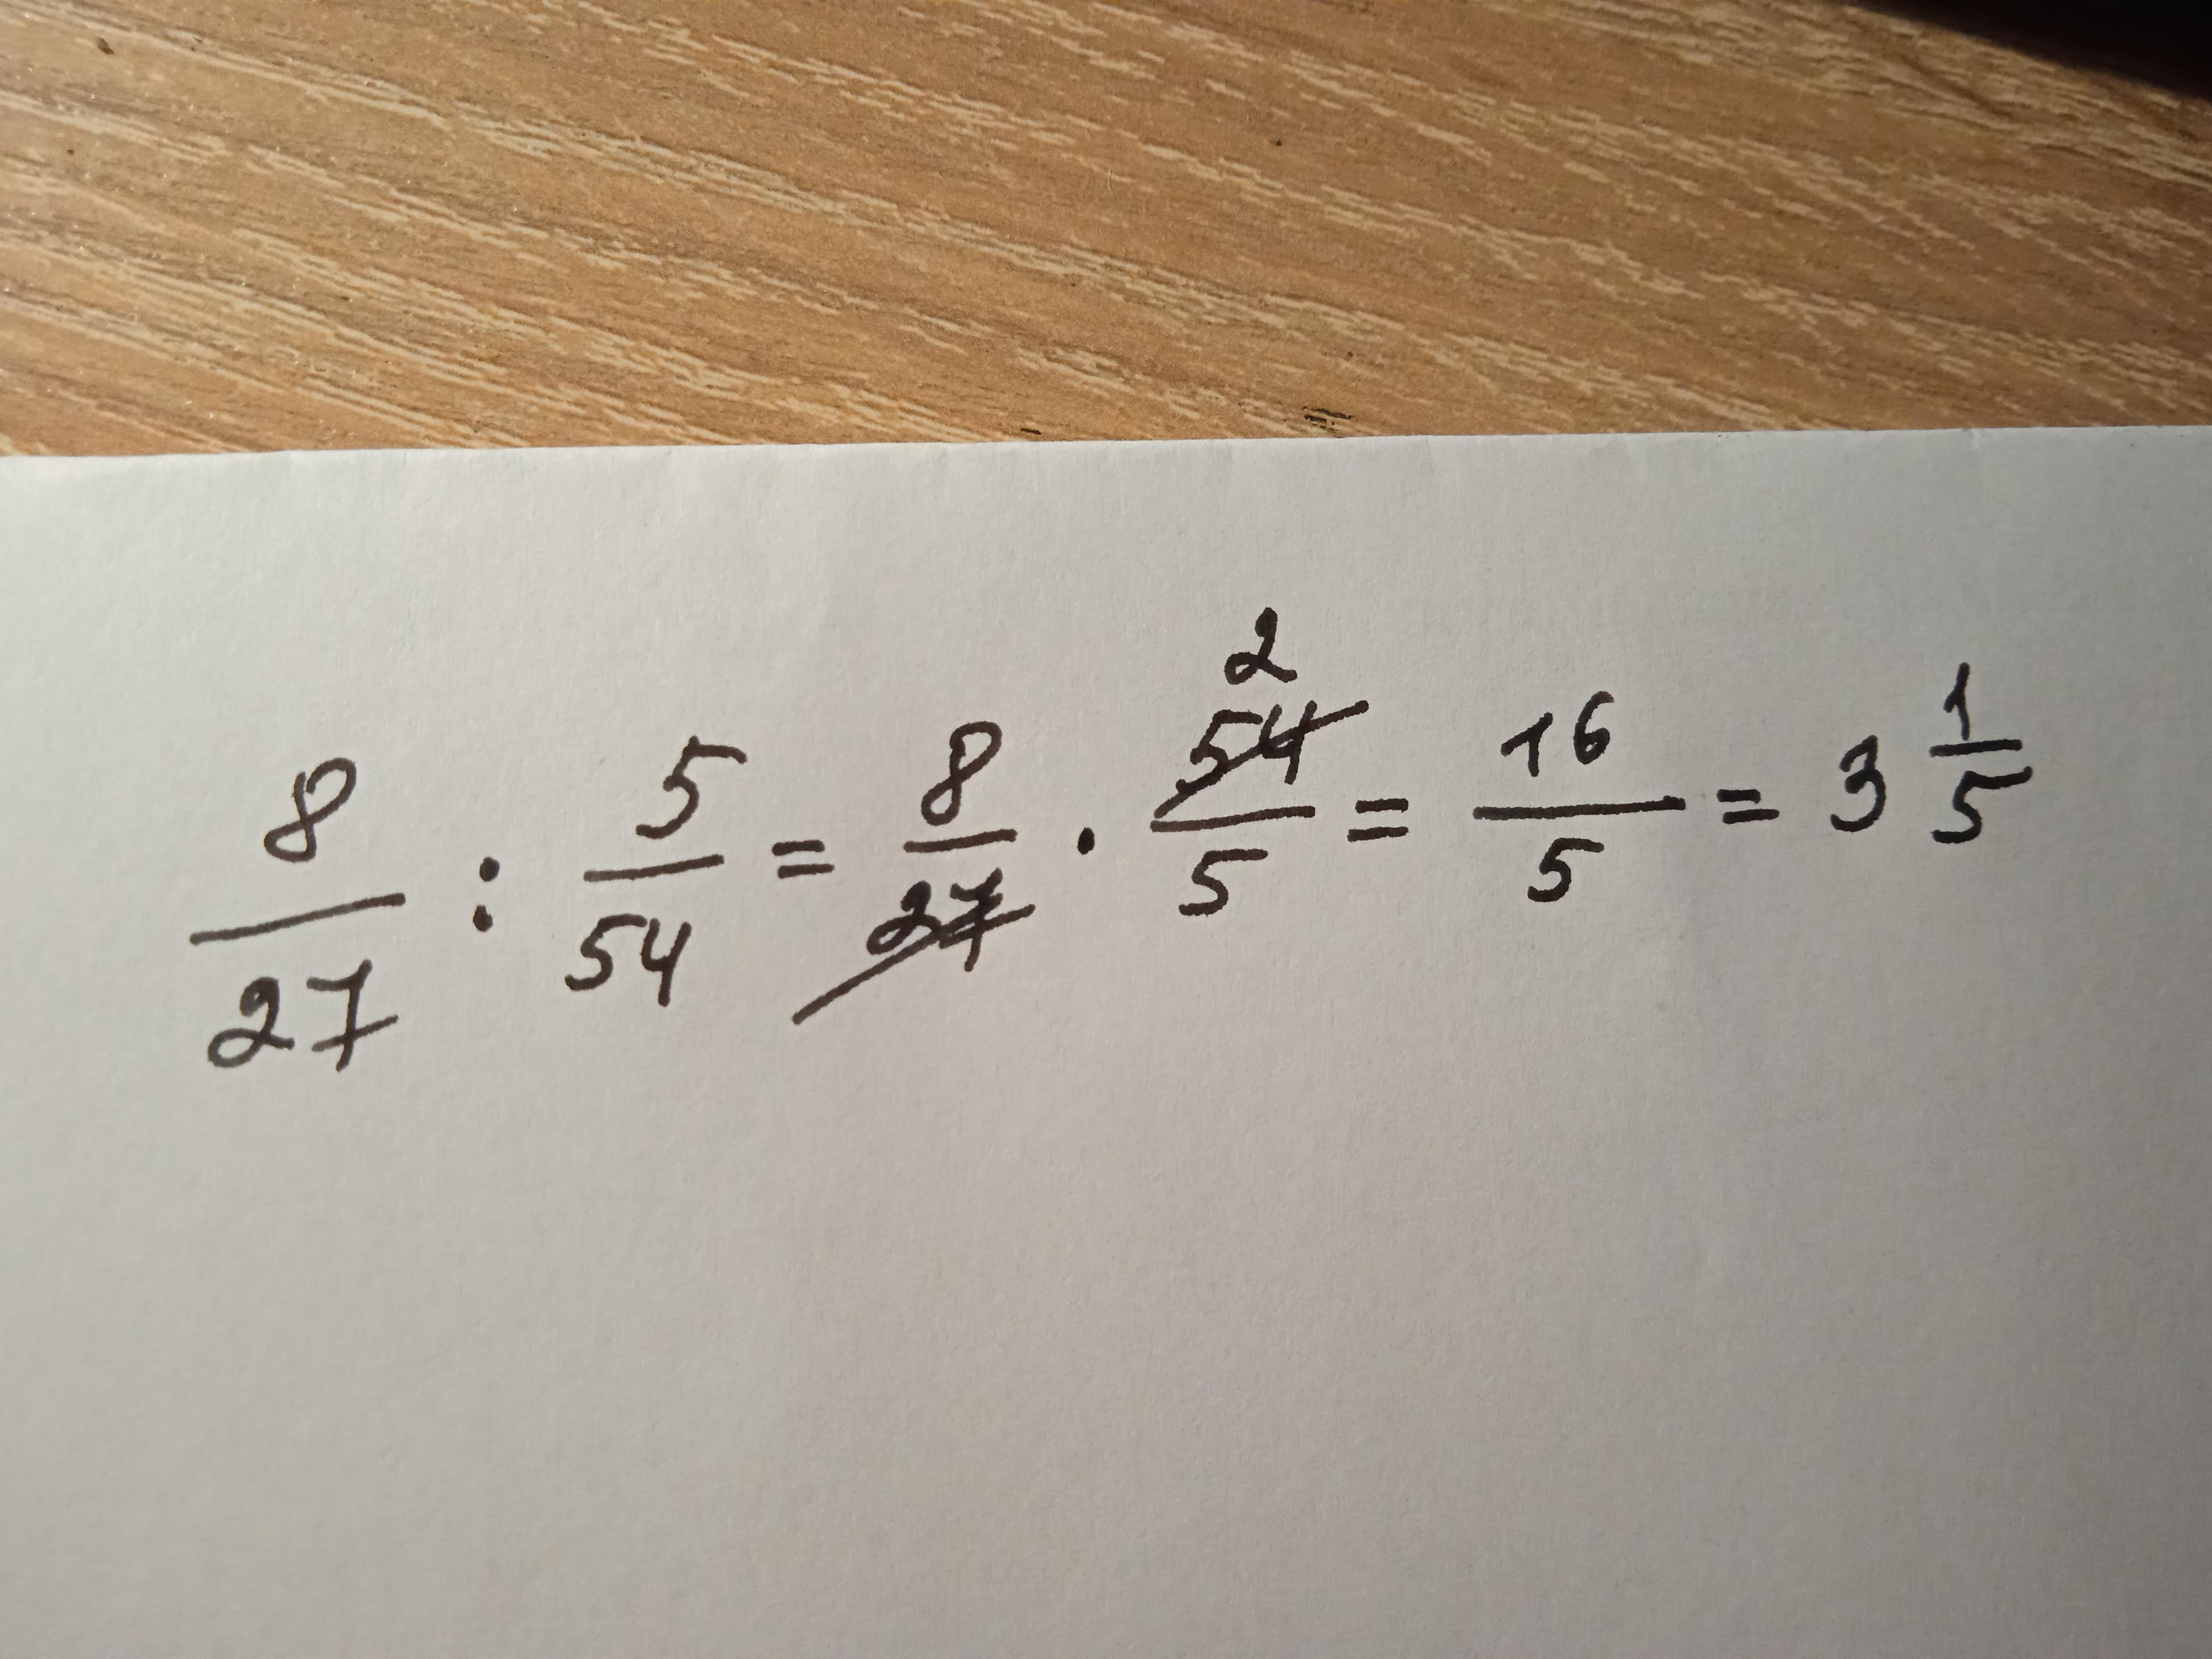 8/27 : 5/54 = 8/27 · 54/5 2 = 16/5 = 3 1/5